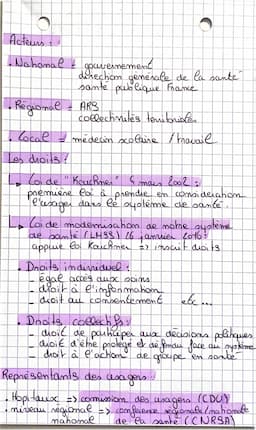 Acteurs :
• National = gouvernement
direction générale de la santé
santé publique France
• Régional = ARS
collectivités territoriales
• Local = médecin scolaire / travail
Les droits :
Loi de "Kouchner" 4 mars 2002 :
première loi à prendre en considération
l'usager dans le système de santé.
Loi de modernisation de notre système
de santé (LMSS) 26 janvier 2016 :
appuie loi Kouchner => inscrit droits
• Droits individuel :
- égal accès aux soins
- droit à l'information
- droit au consentement etc...
• Droits collectifs :
- droit de participer aux décisions politiques
- droit d'être protégé et défendu face au système
- droit à l'action de groupe en santé
Représentants des usagers :
• Hôpitaux => comission des usagers (CDU)
• niveau régional => conférence régionale/nationale
national de la santé (CNRSA)